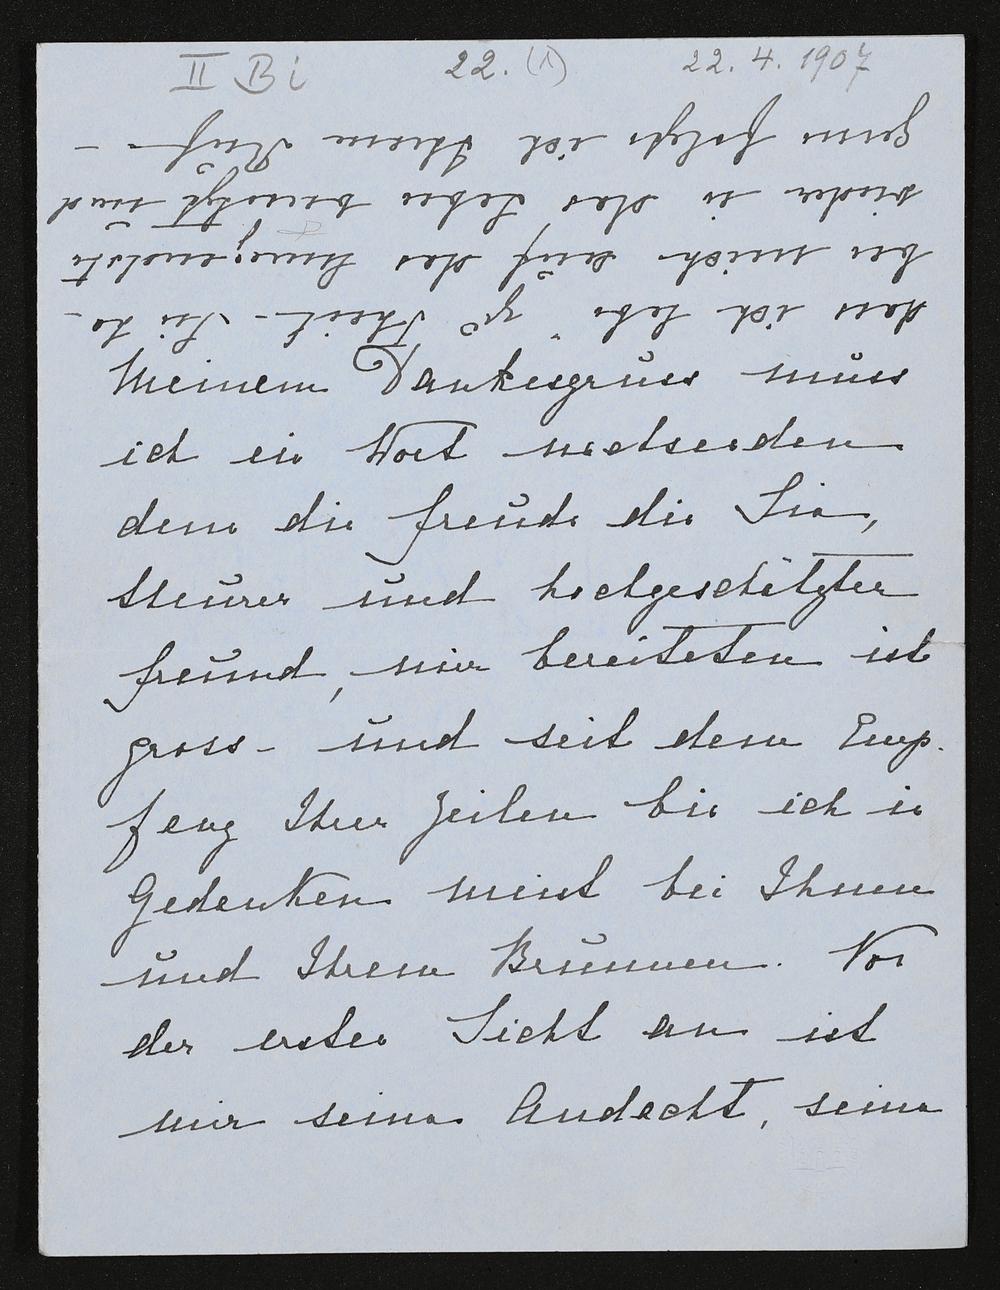 II Bi 22. (1) 22. 4. 1907
Meinem Dankesgruss muss
ich ein Wort nachsenden
denn die Freude die Sie,
theurer und hochgeschätzter
Freund, mir bereiteten ist
gross – und seit dem Emp-
fang Ihrer Zeilen bin ich in
Gedanken meist bei Ihnen
und Ihrem Brunnen. Von
der ersten Sicht an ist
mir seine Andacht, seine
dass ich lebe" zu Theil – Sie ha-
ben mich auf das Anregendste
wieder in das Leben und
gern folgte ich Ihrem Ruf –